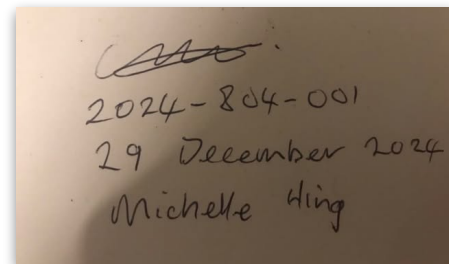 2024-804-001
29 December 2024
Michelle Hing